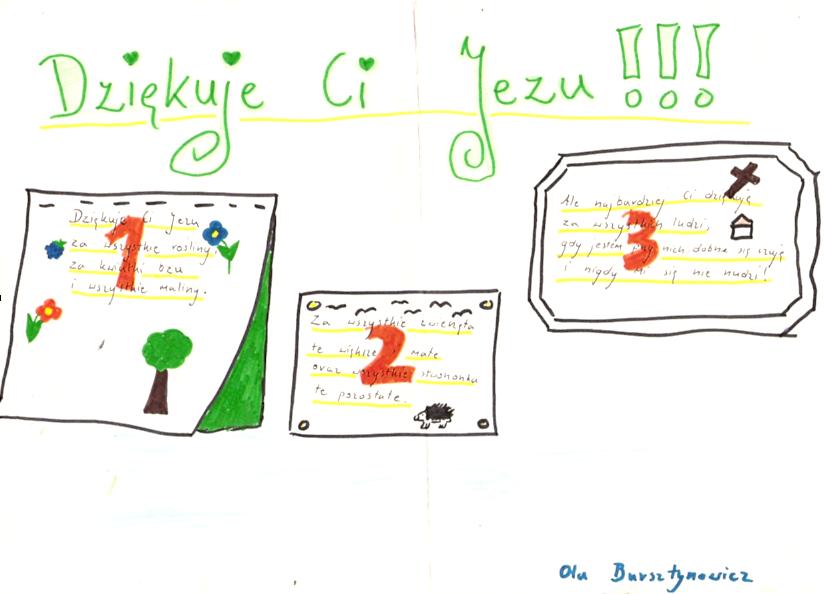 Dziękuje Ci Jezu !!!
1
Dziękuję Ci Jezu
za wszystkie rośliny,
za kwiatki bzu
i wszystkie maliny.
2
Za wszystkie zwierzęta
te większe i małe
oraz wszystkie stworzonka
te pozostałe.
3
Ale najbardziej Ci dziękuję
za wszystkich ludzi,
gdy jestem przy nich dobrze się czuję
i nigdy mi się nie nudzi!
Ola Bursztynowicz